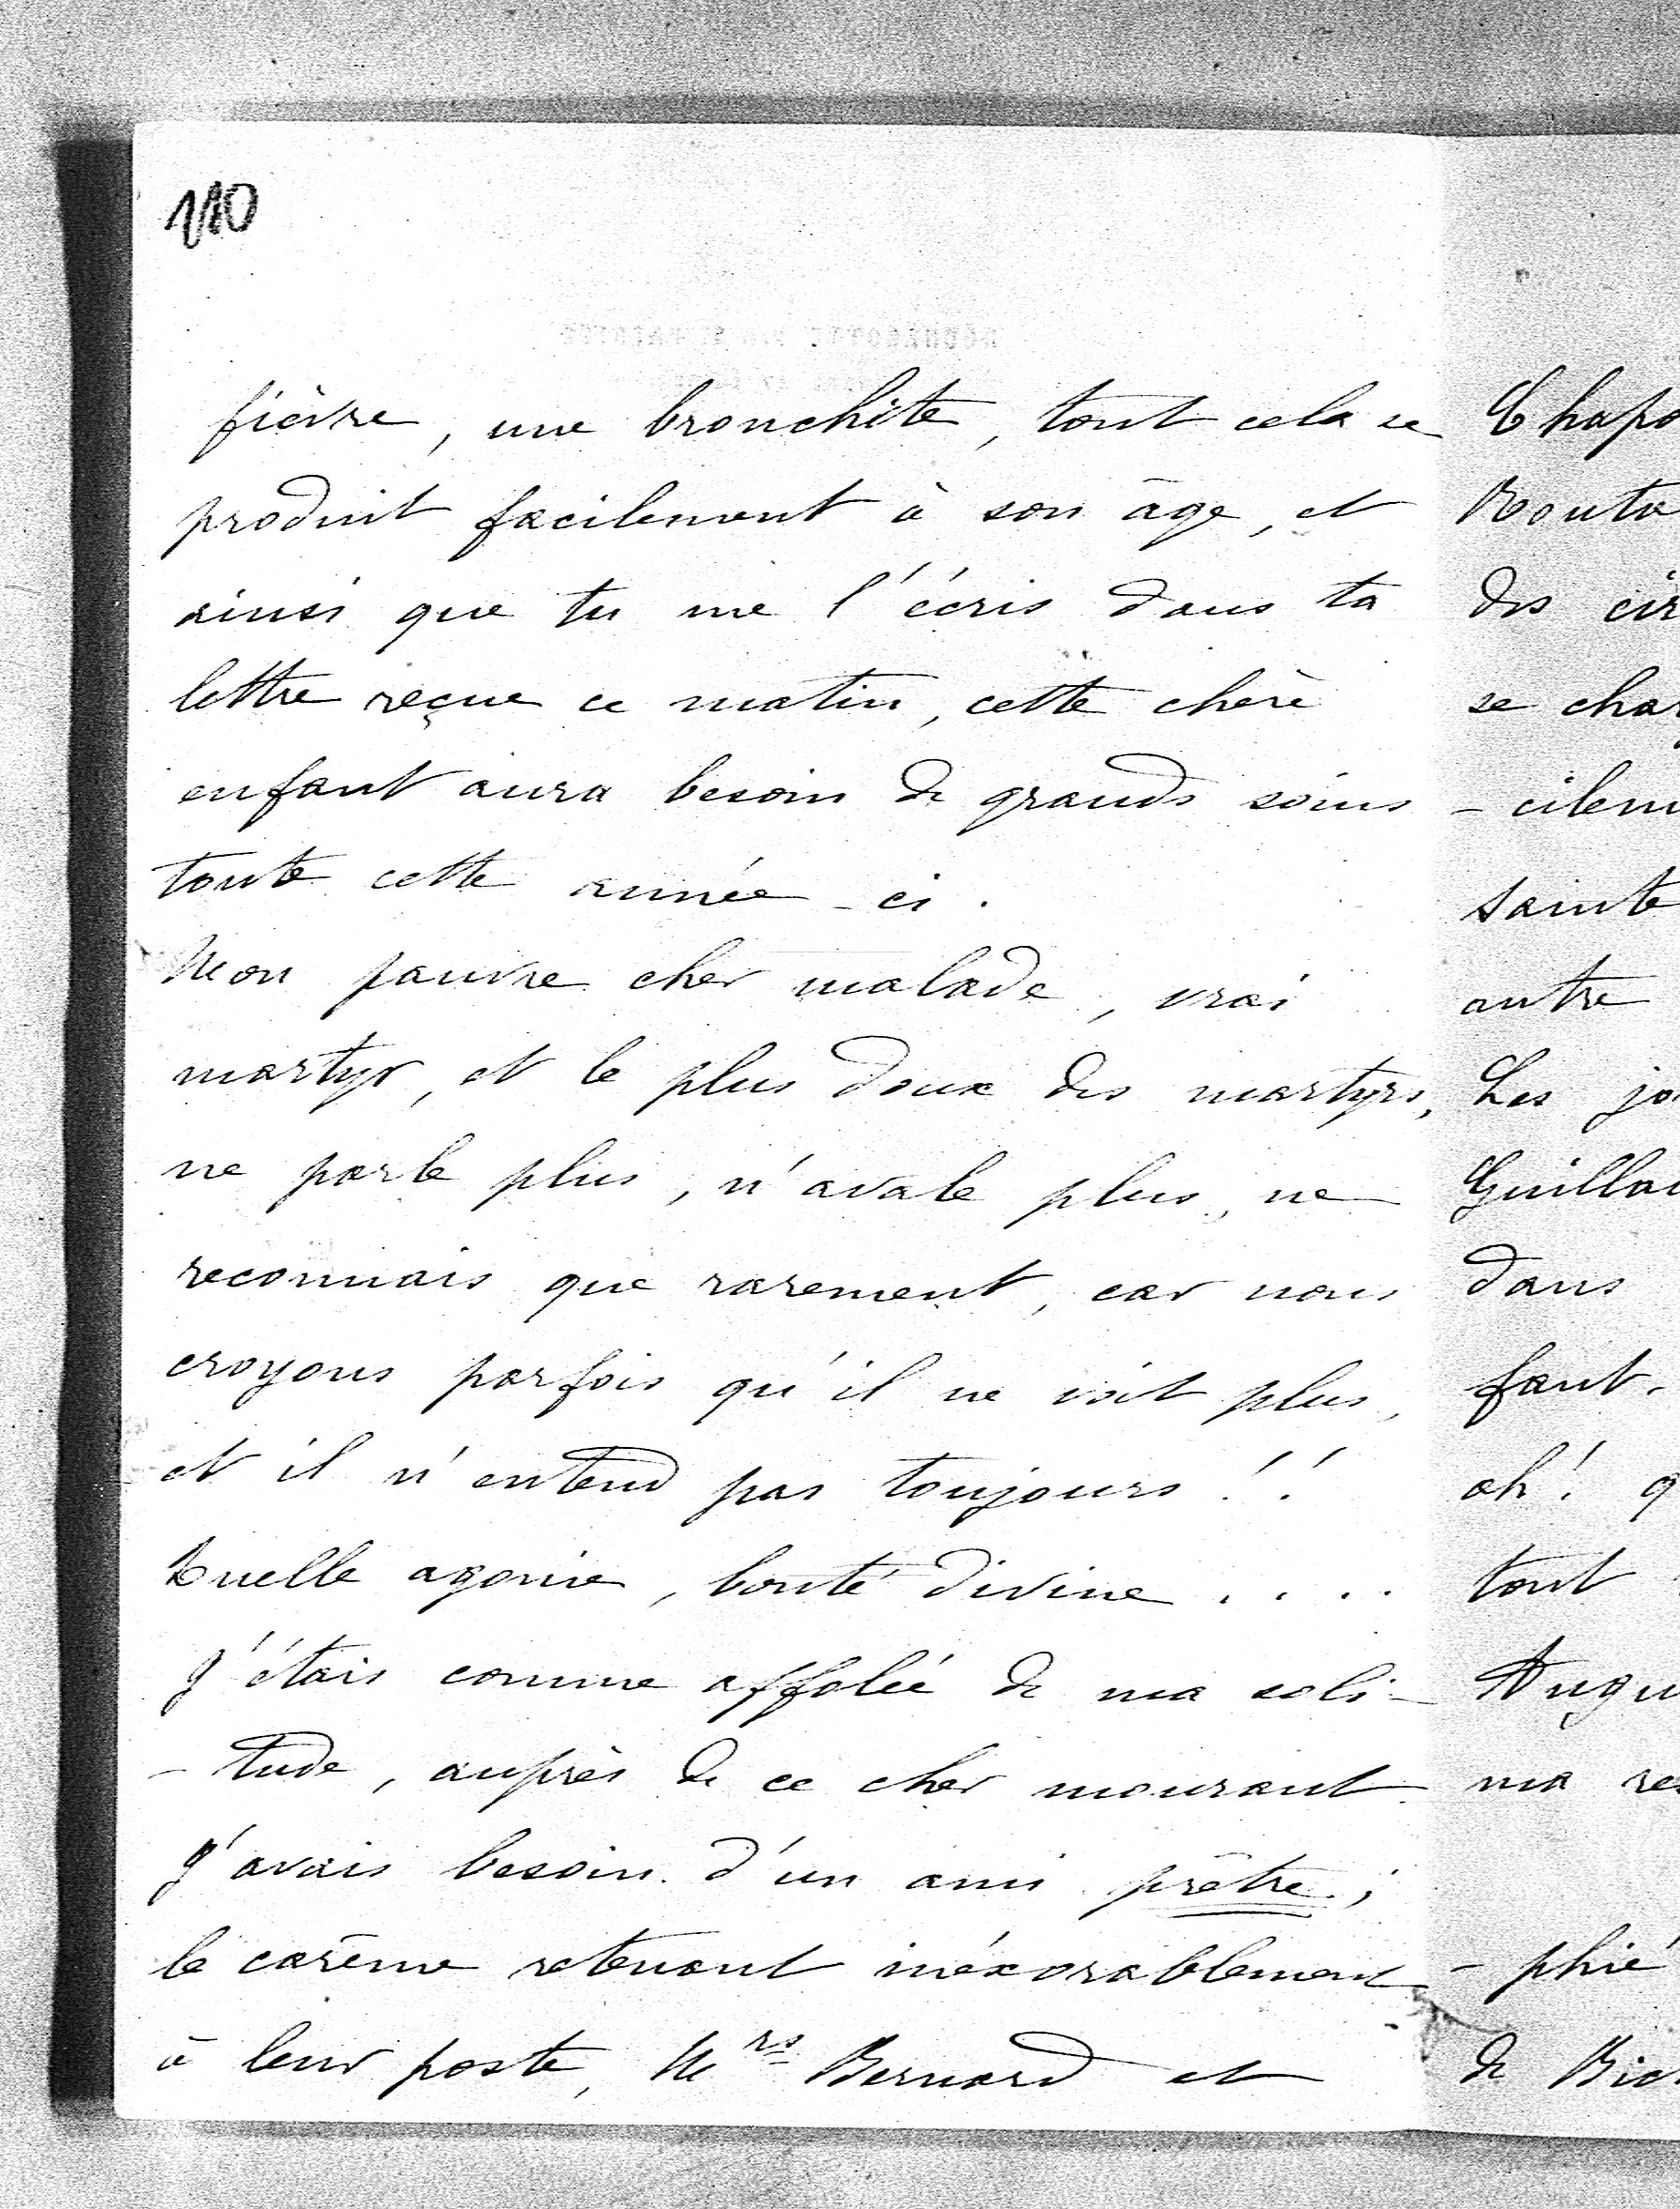 110
fièvre, une bronchite, tout cela se
produit facilement à son âge, et
ainsi que tu me l'écris dans ta
lettre reçue ce matin, cette chère
enfant aura besoin de grands soins
toute cette année-ci.
Mon pauvre cher malade, vrai
martyr, et le plus doux des martyrs,
ne parle plus, n'avale plus, ne
reconnais que rarement, car nous
croyons parfois qu'il ne voit plus,
et il n'entend pas toujours!!
Quelle agonie, bonté divine....
J'étais comme affolée de ma soli-
-tude, auprès de ce cher mourant
J'avais besoin d'un ami prêtre;
le carême retenant inéxorablement
à leur poste, Mrs Bernard et
Chapo
Route
des cir
se char
-cilem
sainte
autre
Les jo
Guillau
dans
faut.
oh! q
tout
Augu
ma re
-phié
de Bic